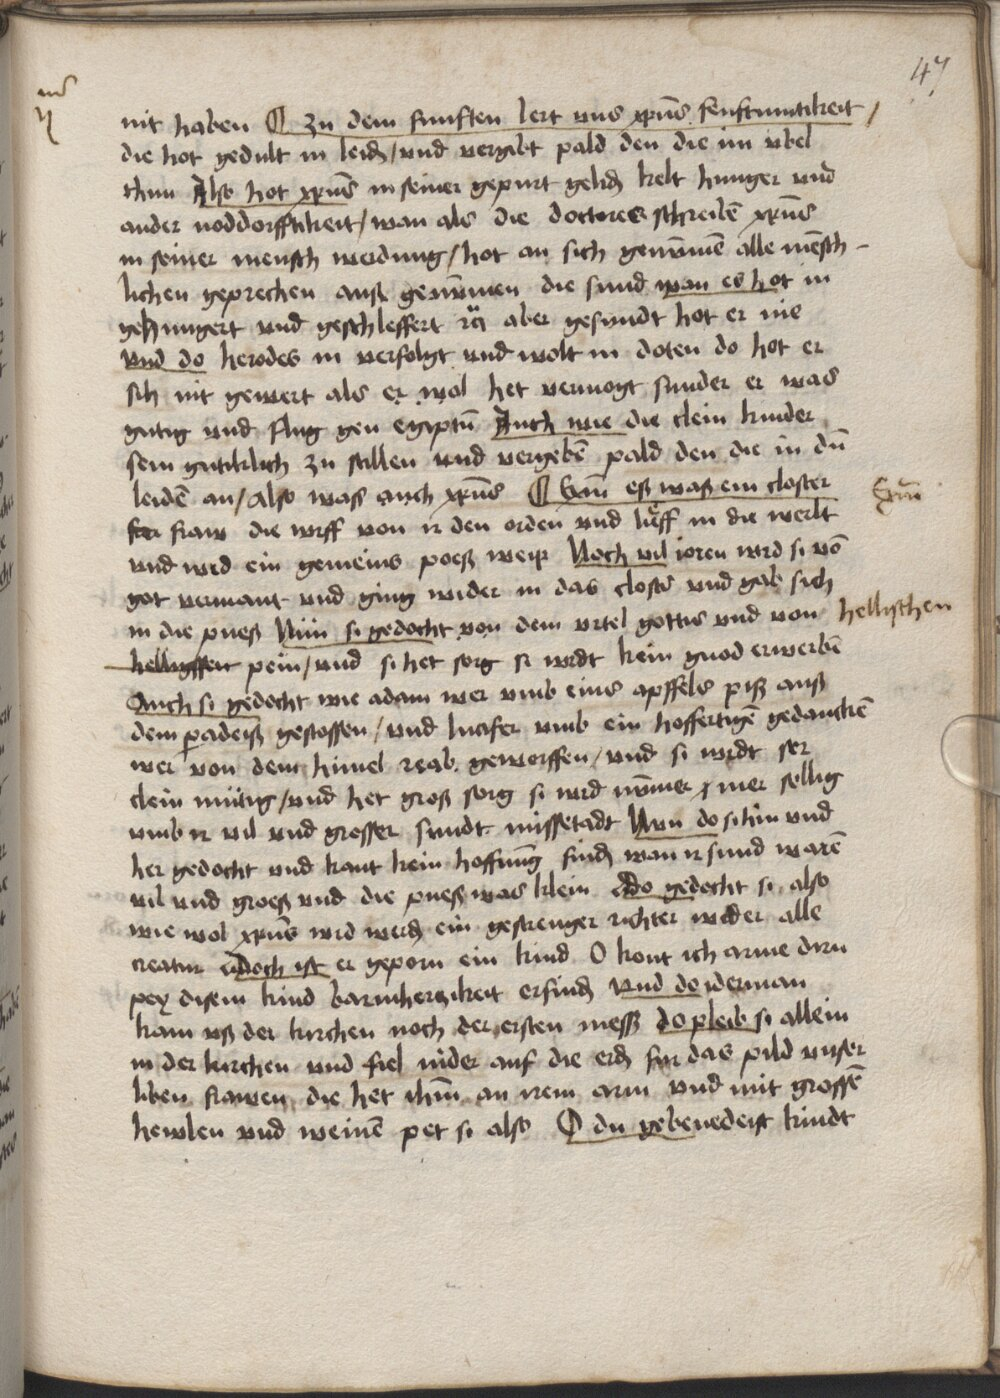 47
nit haben ¶ zu dem funften lert uns xpūs senftmutikeit /
die hot gedult in leidē / und vergibt pald den die im ubel
thun Also hot xpūs in seiner gepurt gelidē kelt hunger und
ander noddorfftikeit / wan als die doctores schreibē xpūs
in seiner mensch werdung / hot an sich genūmē alle mēsch -
lichen geprechen auß genūmen die sund wan es hot in
gehungert und geschleffert rc̄ aber gesundt hot er nie
und do herodes in verfolgt und wolt in doten do hot er
sih nit gewert als er wol het vermogt sunder er was
gutig und flug gen egiptū Auch wie die clein kinder
sein gutiklich zu stillen und vergebē pald den die in dū
leidē an / also waß auch xpūs ¶ Exm̄ eß waß ein closter
Exm̄
fraw die wrff von ir den orden und luff in die werlt
und wrd ein gemeins poeß weip Noch vil joren wrd si vō
got vermant und ging wider in das closter und gab sich
in die pueß Nun si gedocht von dem urtel gottis und von hellischen
pein / und si het sorg si wrdt kein gnod erwerbē
Auch si gedocht wie adam wer umb eins apffels piß auß
dem padeiß gestossen / und lucifer umb ein hoffertigē gedanckē
wer von dem himel rab geworffen / und si wrdt ser
clein mutig / und het groß sorg si wrd nūmer mer sellig
umb ir vil und grosser sundt missetadt Nun do si hin und
her gedocht und kant kein hoffnūg findē wan ir sund warē
vil und groeß und die pueß was klein Do gedocht si also
wie wol xpūs wrd werdē ein gestrenger richter wider alle
creatur Doch ist er geporn ein kind O kont ich arme dirn
pey disem kind barmhertzikeit erfindē Und do iderman
kam uß der kirchen noch der ersten meß do pleib si allein
in der kirchen und fiel nider auf die erdē fur das pild unser
liben frawen die het ihm̄ an irem arm und mit grossē
hewlen und weinē pet si also O du gebenedeist kindt